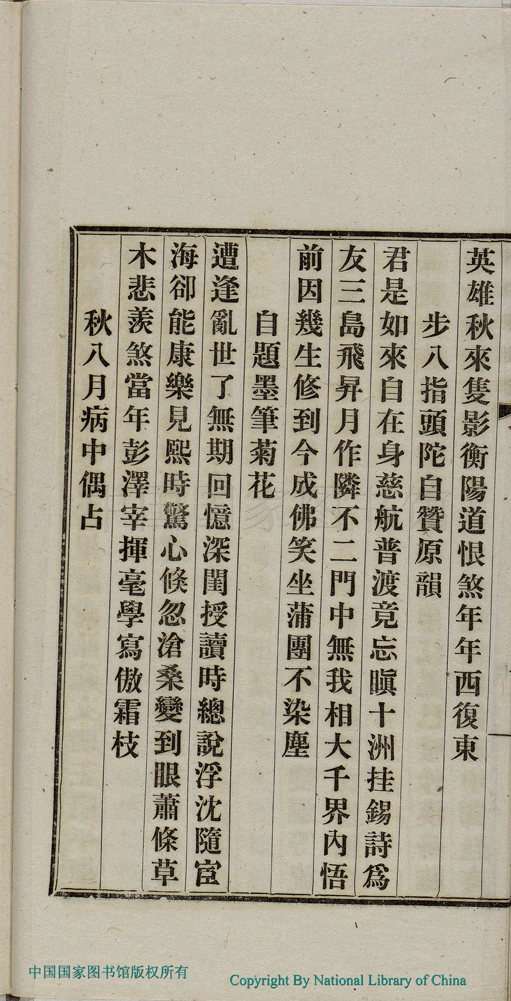 英雄秋來隻影衡陽道恨煞年年西復東
步八指頭陀自贊原韻
君是如來自在身慈航普渡竟忘瞋十洲挂錫詩爲
友三島飛昇月作隣不二門中無我相大千界內悟
前因幾生修到今成佛笑坐蒲團不染塵
自題墨筆菊花
遭逢亂世了無期回憶深閨授讀時總說浮沈隨宦
海卻能康樂見熙時驚心倏忽滄桑變到眼蕭條草
木悲羨煞當年彭澤宰揮毫學寫傲霜枝
秋八月病中偶占
中国国家图书馆版权所有
Copyright By National Library of China